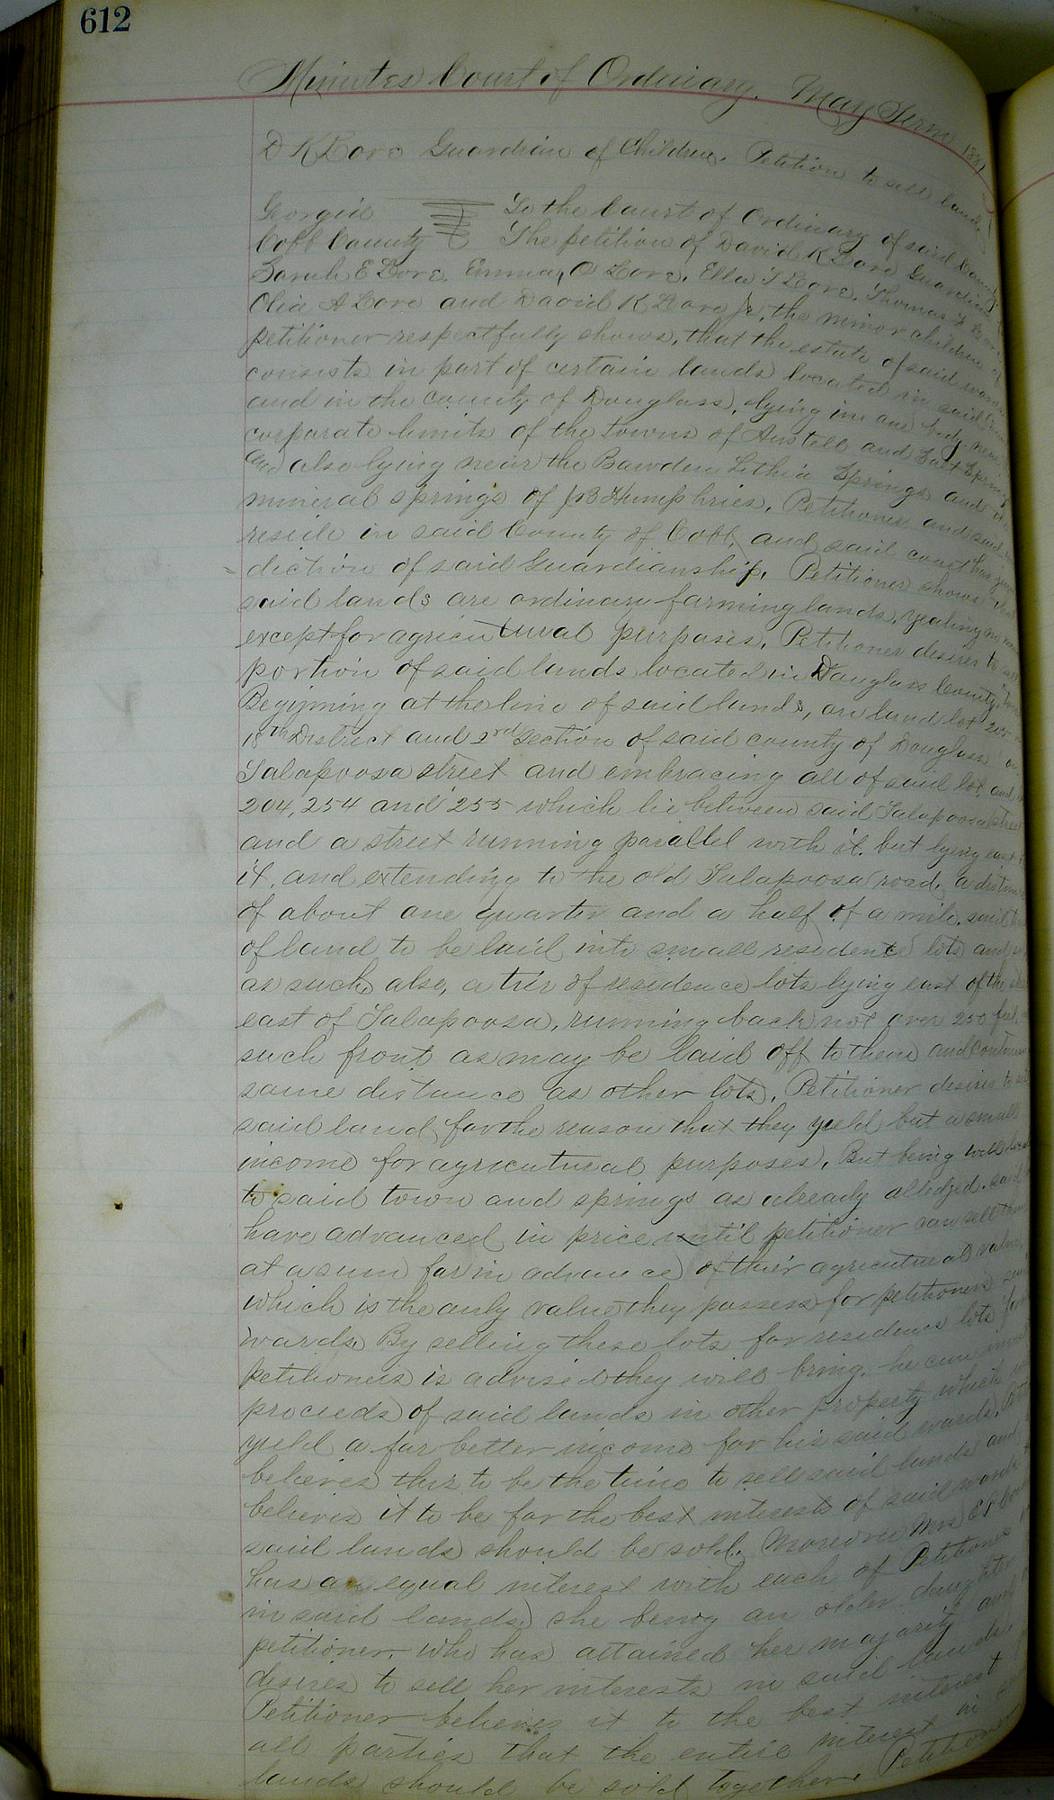 612
Minutes Court of Ordinary. May Term 1887
D K Love Guardian of Children. Petition to sell lands
Georgia To the Court of Ordinary of said County
Cobb County The petition of David K Love Guardian
Sarah E Love. Emma O Love. Ella T Love. Thomas
Olia A Love and David K Love Jr, the minor children of
petitioner respectfully shows, that the estate of said wards
consists in part of certain lands located in said
and in the county of Douglass, lying in one body near
corporate limits of the towns of Austell and Salt Springs
and also lying near the Bowden Lithia Springs and
mineral springs of J B Humphries. Petitioner and said
reside in said County of Cobb and said court has juris
diction of said Guardianship. Petitioner shows that
said lands are ordinary farming lands, yealing no
except for agricutural purposes. Petitioner desires to sell
portion of said lands located in Douglass County.
Beginning at the line of said lands, on land lot 205
18th District and 2rd Section of said county of Douglass on
Talapoosa street and embracing all of said lot and
204, 254 and 255 which lie between said Talapoosa street
and a street running parallel with it. but lying east
it. and extending to the old Talapoosa road, a distance
of about one quarter and a half of a mile. said
of land to be laid into small residence lots and
as such, also, a tier of residence lots lying east of the
east of Talapoosa, running back not over 250 feet,
such front as may be laid off to them and continue
same distance as other lots. Petitioner desires to sell
said land for the reason that they yeeld but a small
income for agricutueal purposes. But being well
to said town and springs as already alledged. said
have advanced in price until petitioner can sell them
at a sum far in advance of their agricutueal value,
which is the only value they possess for petitioners
wards. By selling these lots for residence lots for
petitioneis is advised they will bring. he can invest
proceeds of said lands in other property which
yield a far better income for his said wards.
believes this to be the time to sell said lands and
believes it to be for the best interests of said wards
said lands should be sold. Moreover Mrs
has an equal interest with each of Petitioners
in said lands, she being an older daughter
petitioner. who has attained her majority and
desires to sell her interests in said lands.
Petitioner believes it to the best interest
all parties that the entire interest in
lands should be sold together. Petitioner